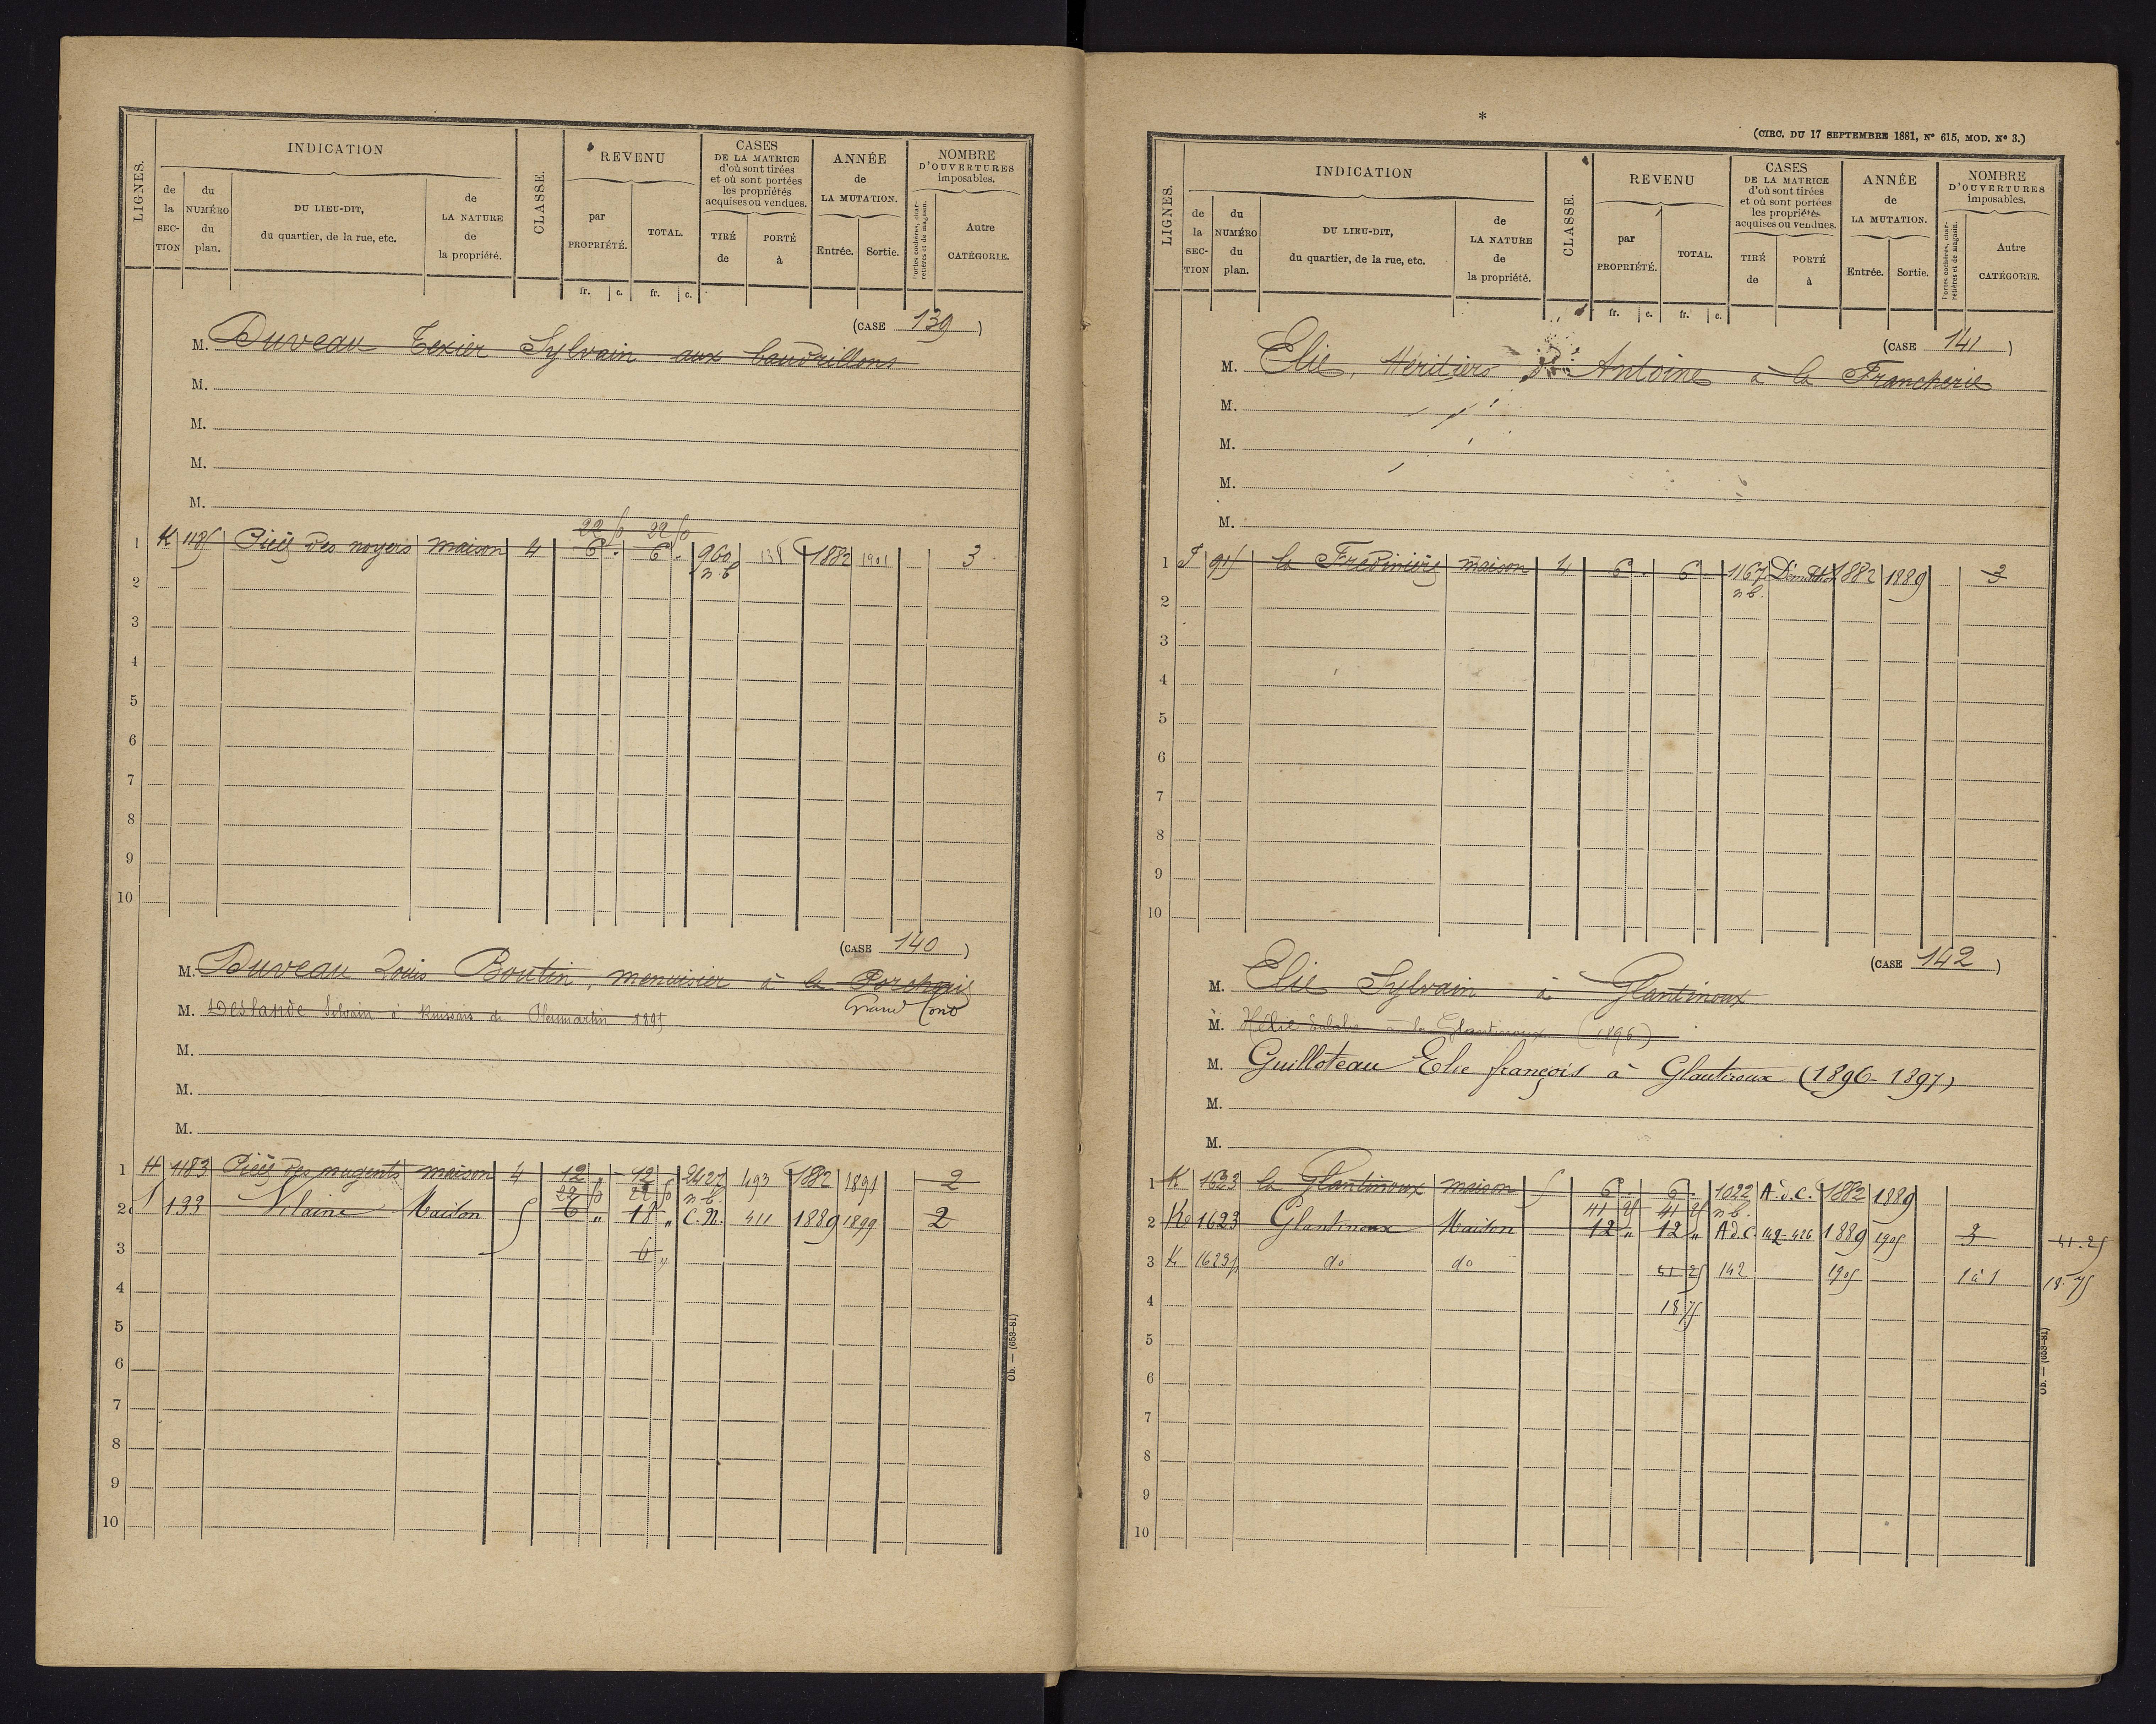 LIGNES.
INDICATION
de la SECTION
du NUMÉRO du plan.
DU LIEU-DIT, du quartier, de la rue, etc.
de LA NATURE de la propriété.
CLASSE.
REVENU
par PROPRIÉTÉ.
TOTAL.
CASES DE LA MATRICE d'où sont tirées et où sont portées les propriétés acquises ou vendues.
TIRÉ de
PORTÉ à
ANNÉE de LA MUTATION.
Entrée.
Sortie.
NOMBRE D'OUVERTURES imposables.
Portes cochères, charretières et de magasin.
Autre CATÉGORIE.
fr. c. fr. c.
(CASE 139)
M. Duveau Texier Sylvain aux baudrillons
M.
M.
M.
M.
22 50 22 50
1 K 1185 Pièce des noyers maison 4 6 . 6 . 960 138 1882 1901 3
n. b
2
3
4
5
6
7
8
9
10
(CASE 140)
M. Duveau Louis Boutin, menuisier à la
Grand Cont
M. Deslande Silvain à 1895
M.
M.
M.
1 H 1183 Pièce des nugents maison 4 12 „ 12 „ 2427 493 1882 1891 2
22 50 22 50 n. b.
2 133 Vilaine Maison 5 6 „ 18 „ C. N. 411 1889 1899 2
3 6 „
4
5
6
7
8
9
10
Ob. — (653-81)
*
(CIRC. DU 17 SEPTEMBRE 1881, N° 615, MOD. N° 3.)
LIGNES.
INDICATION
de la SECTION
du NUMÉRO du plan.
DU LIEU-DIT, du quartier, de la rue, etc.
de LA NATURE de la propriété.
CLASSE.
REVENU
par PROPRIÉTÉ.
TOTAL.
CASES DE LA MATRICE d'où sont tirées et où sont portées les propriétés acquises ou vendues.
TIRÉ de
PORTÉ à
ANNÉE de LA MUTATION.
Entrée.
Sortie.
NOMBRE D'OUVERTURES imposables.
Portes cochères, charretières et de magasin.
Autre CATÉGORIE.
fr. c. fr. c.
(CASE 141)
M. Elie, Héritiers d' Antoine à la Francherie
M.
M.
M.
M.
1 915 la Fredinière maison 4 6 . 6 . 1167 Démolition 1882 1889 3
n. b.
2
3
4
5
6
7
8
9
10
(CASE 142)
M. Elie Sylvain à Glantinoux
M. Hélie Eulalie à la Glantinoux (1896)
M. Guilloteau Elie françois à Glantinoux (1896-1897)
M.
M.
1 K 1633 la Glantinoux maison 5 6 . 6 . 1022 A. d. C. 1882 1889
41 25 41 25 n. b.
2 Ke 1623 Glantinoux Maison 12 „ 12 „ A d. C. 142-426 1889 1905 3 41.25
3 K 1623p do do 41 25 142 1905 1 à 1 18.75
4 18 75
5
6
7
8
9
10
Ob. — (653-81)